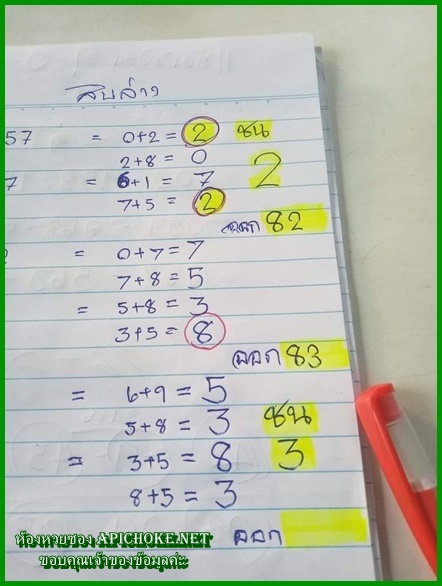 สิบล่าง
57 = 0+2 = 2 ชน
2+8 = 0 2
7 = 6+1 = 7
7+5 = 2
ออก 82
= 0+7 = 7
7+8 = 5
= 5+8 = 3
3+5 = 8
ออก 83
= 6+9 = 5
5+8 = 3 ชน
= 3+5 = 8 3
8+5 = 3
ออก
ห้องหวยซอง APICHOKE.NET
ขอบคุณเจ้าของข้อมูลค่ะ